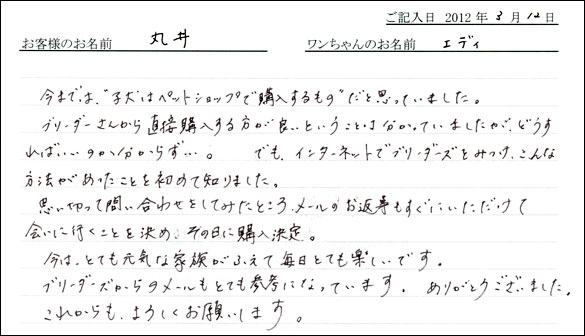 ご記入日 2012 年 3 月 12 日
お客様のお名前 丸井 ワンちゃんのお名前 エディ
今までは、"子犬はペットショップで購入するもの"だと思っていました。
ブリーダーさんから直接購入する方が良いということは分かっていましたが、どうす
ればいいのか分からず…。 でも、インターネットでブリーダーズをみつけ、こんな
方法があったことを初めて知りました。
思い切って問い合わせをしてみたところ、メールのお返事もすぐにいただけて
会いに行くことを決め、その日に購入決定。
今は、とても元気な家族がふえて毎日とても楽しいです。
ブリーダーズからのメールもとても参考になっています。 ありがとうございました。
これからも、よろしくお願いします。